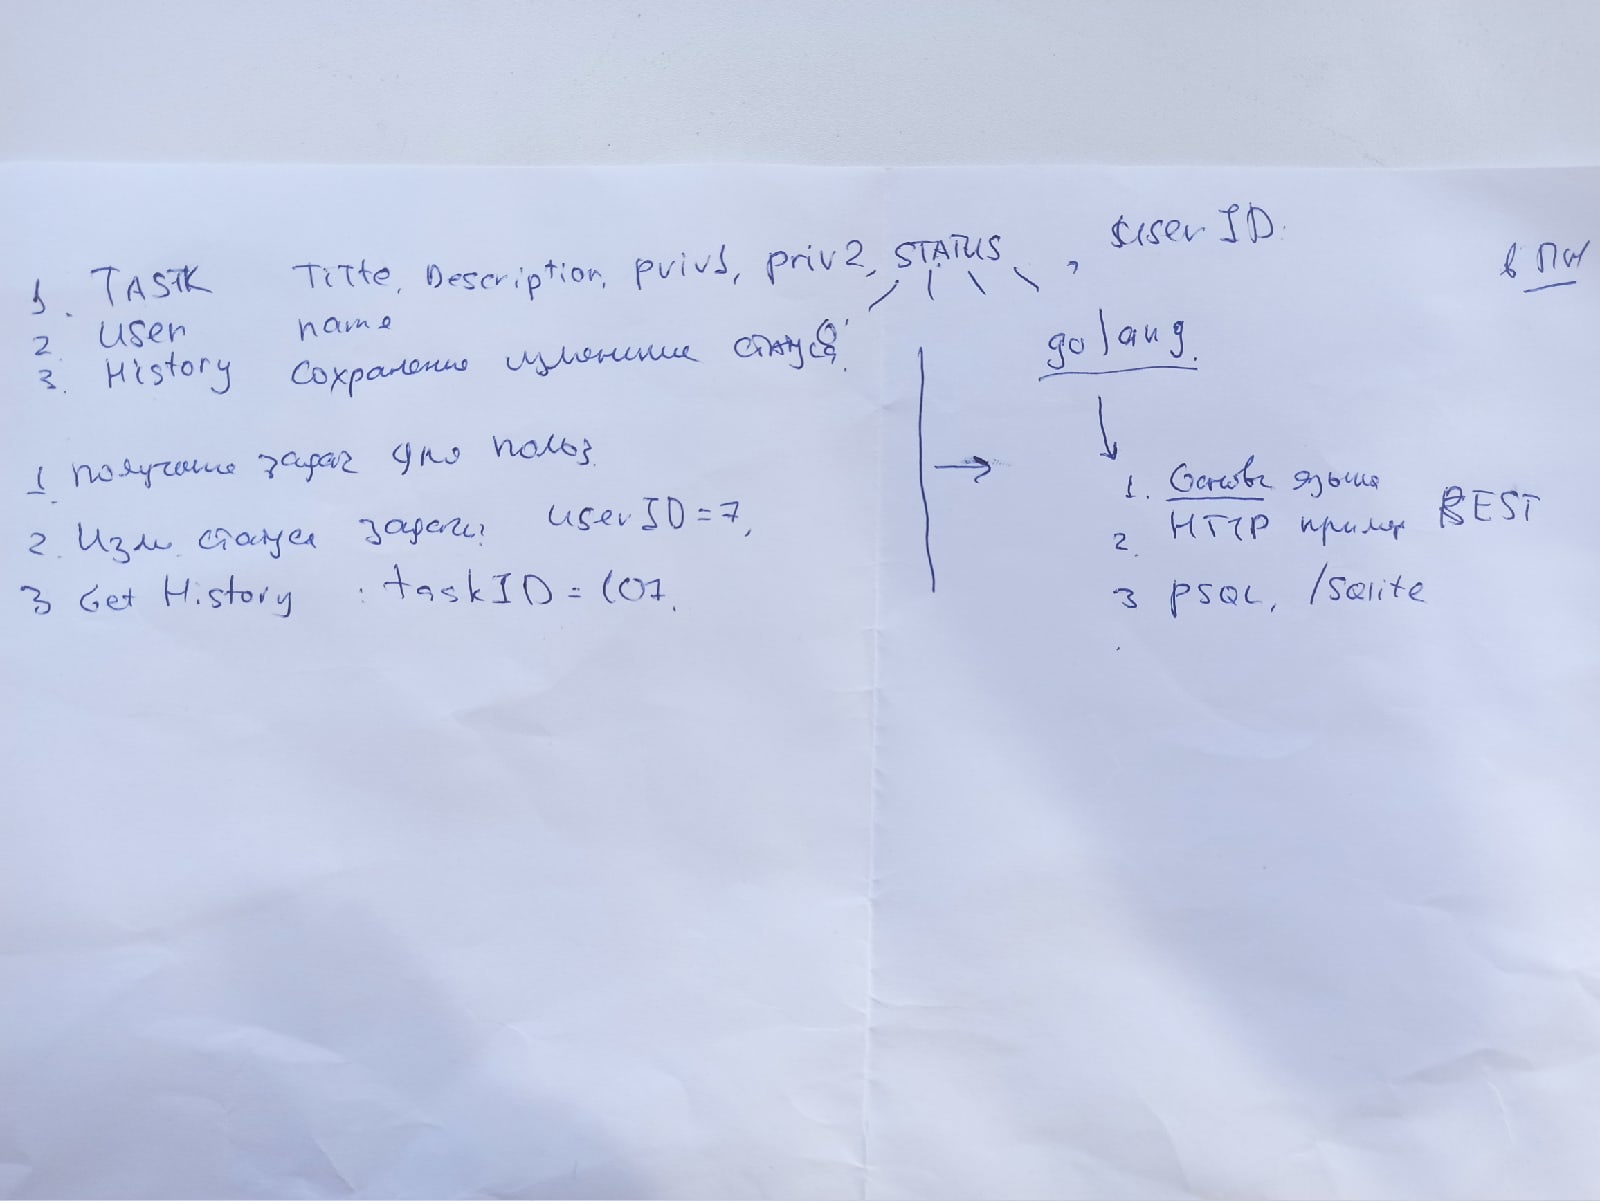 1. TASK Title, Description, priv1, priv2, STATUS, userID.
2. User name
3. History Сохранение изменение статуса
1. получение задач для польз.
2. Изм. статуса задачи: userID=7,
3 Get History : taskID = 107.
в ПН
golang.
1. Основы языка
2. HTTP пример REST
3 PSQL, /SQlite